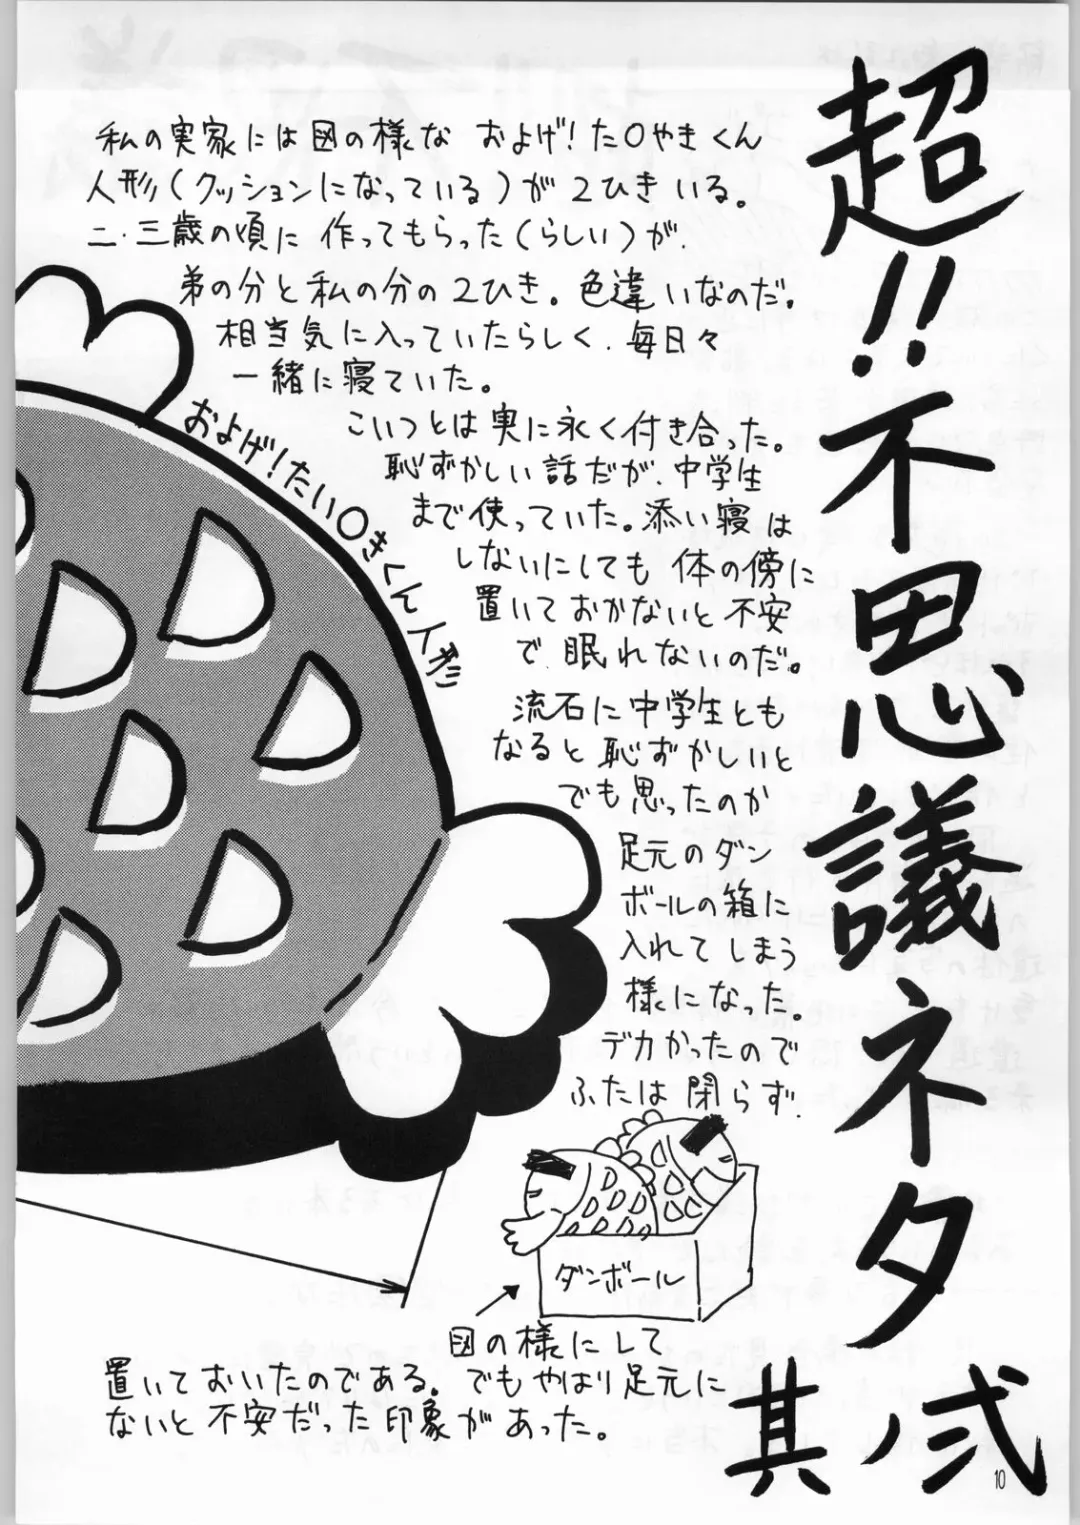 超!!不思議ネタ
其ノ弐
私の実家には図の様な およげ!た〇やきくん
人形(クッションになっている)が2ひきいる。
二・三歳の頃に 作ってもらった(らしい)が、
弟の分と私の分の2ひき。色違いなのだ。
相当気に入っていたらしく、毎日々
一緒に寝ていた。
こいつとは実に永く付き合った。
恥ずかしい話だが、中学生
まで使っていた。添い寝は
しないにしても 体の傍に
置いておかないと不安
で、眠れないのだ。
流石に中学生とも
なると恥ずかしいと
でも思ったのか
足元のダン
ボールの箱に
入れてしまう
様になった。
デカかったので
ふたは閉らず、
図の様にして
置いておいたのである。でもやはり足元に
ないと不安だった印象があった。
およげ!たい〇きくん人形
ダンボール
10